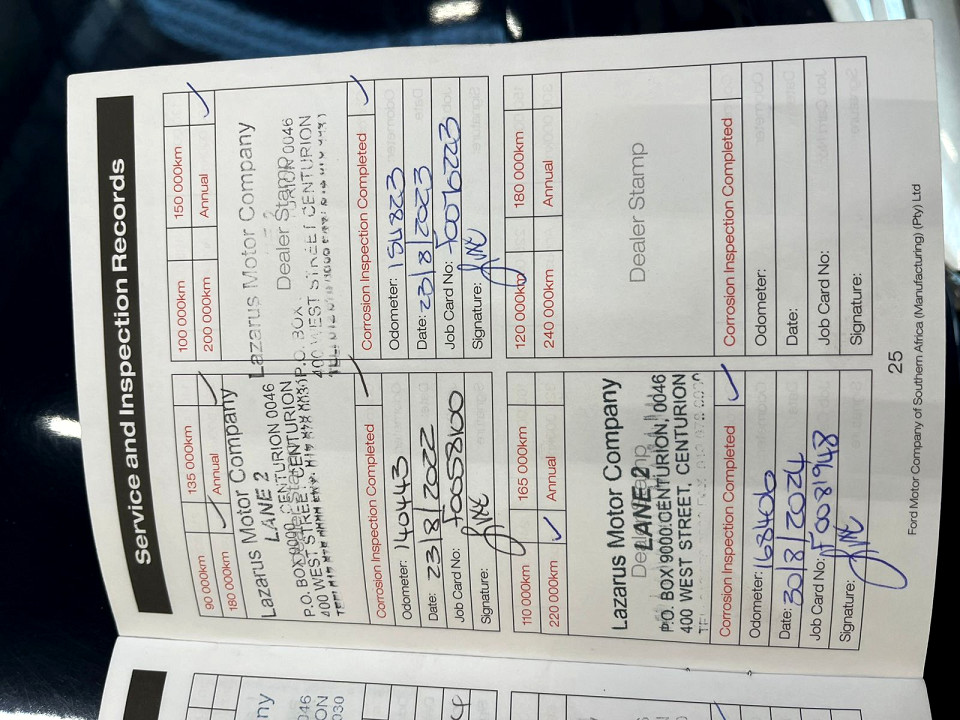 Service and Inspection Records
90 000km
135 000km
180 000km
Annual
Lazarus Motor Company
LANE 2
P.O. BOX 9000, CENTURION 0046
400 WEST STREET, CENTURION
Corrosion Inspection Completed
Odometer: 140443
Date: 23/8/2022
Job Card No: F0058100
Signature:
100 000km
150 000km
200 000km
Annual
Lazarus Motor Company
Dealer Stamp
P.O. BOX CENTURION 0046
400 WEST STREET CENTURION
Corrosion Inspection Completed
Odometer: 154823
Date: 23/8/2023
Job Card No: F0076223
Signature:
110 000km
165 000km
220 000km
Annual
Lazarus Motor Company
Dealer Stamp
LANE 2
P.O. BOX 9000, CENTURION, 0046
400 WEST STREET, CENTURION
Corrosion Inspection Completed
Odometer: 168406
Date: 30/8/2024
Job Card No: F0081948
Signature:
120 000km
180 000km
240 000km
Annual
Dealer Stamp
Corrosion Inspection Completed
Odometer:
Date:
Job Card No:
Signature:
25
Ford Motor Company of Southern Africa (Manufacturing) (Pty) Ltd